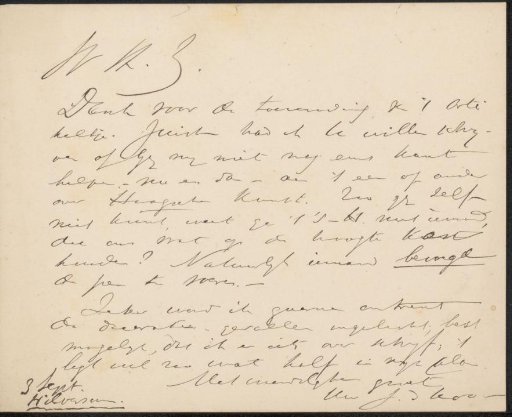 W K. Z.
Dank voor de toezending v. 't arti
keltje. Juist had ik U willen schrij-
ven of gij mij niet nog eens kunt
helpen - nu en dan - aan 't een of ander
over Haagsche kunst. Zoo gij zelf
niet kunt, weet ge 't is niet iemand,
die ons wat op de hoogte kan
houden? Natuurlijk iemand bevoegd
de pen te voeren. -
Zeker word ik gaarne omtrent
de decoratie-gevallen ingelicht, best
mogelijk, dat ik er iets over schrijf; 't
ligt wel zoo wat half in mijn plan.
Met vriendelijke groet
Uw J. d
3 Sept.
Hilversum.